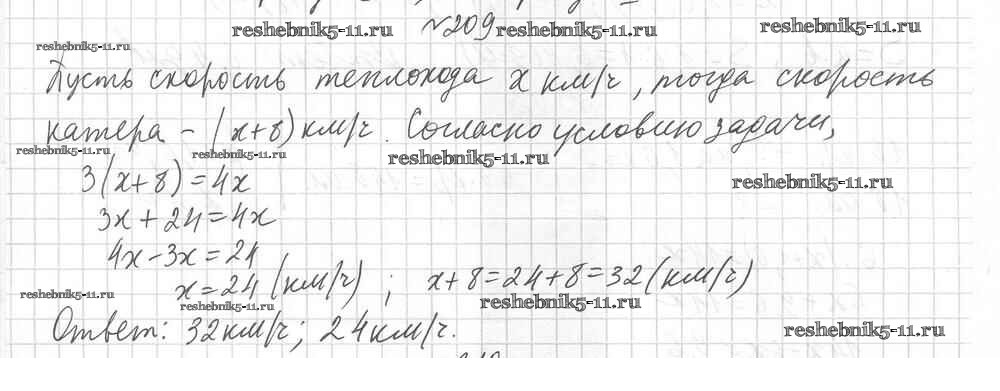 №209
Пусть скорость теплохода x км/ч, тогда скорость
катера - (x+8) км/ч. Согласно условию задачи,
3(x+8)=4x
3x+24=4x
4x-3x=24
x=24 (км/ч) ; x+8=24+8=32 (км/ч)
Ответ: 32км/ч; 24км/ч.
reshebnik5-11.ru
reshebnik5-11.ru
reshebnik5-11.ru
reshebnik5-11.ru
reshebnik5-11.ru
reshebnik5-11.ru
reshebnik5-11.ru
reshebnik5-11.ru
reshebnik5-11.ru
reshebnik5-11.ru
reshebnik5-11.ru
reshebnik5-11.ru